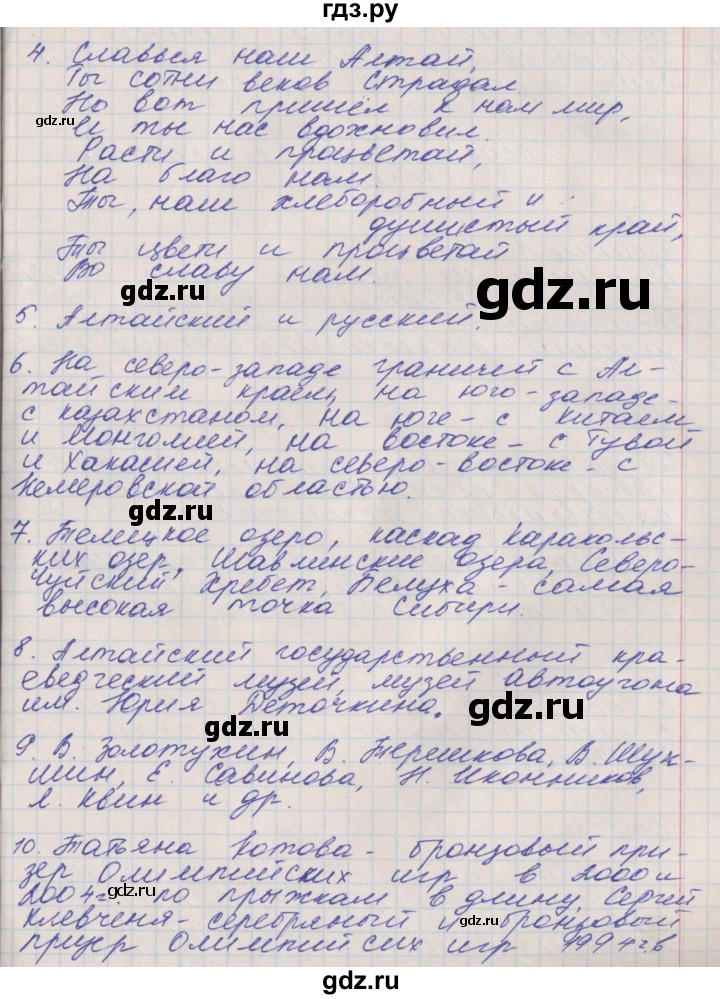 гдз.ру
4. Славься наш Алтай,
Ты сотни веков страдал.
Но вот пришёл к нам мир,
И ты нас вдохновил.
Расти и процветай,
На благо нам.
Ты, наш хлеборобный и
душистый край,
Ты цвети и процветай
Во славу нам.
5. Алтайский и русский.
6. На северо-западе граничей с Ал-
тайским краем, на юго-западе-
с казахстаном, на юге - с Китаем
и Монголией, на востоке - с Тувой
и Хакасией, на северо-востоке - с
Кемеровской областью.
7. Телецкое озеро, каскад Каракольс-
ких озер, Шавлинские озера, Северо-
Чуйский Хребет, Белуха - самая
высокая точка Сибири.
8. Алтайский государственный кра-
еведческий музей, музей автоугона
им. Юрия Деточкина.
9. В. Золотухин, В. Терешкова, В. Шук-
шин, Е. Савинова, Н. Иконников,
Л. Квин и др.
10. Татьяна Котова - бронзовый при-
зер Олимпийских игр в 2000 и
2004 г. по прыжкам в длину, Сергей
Клевченя - серебряный и бронзовый
призер Олимпийсих игр 1994 г. в
gdz.ru
gdz.ru
gdz.ru
gdz.ru
gdz.ru
gdz.ru
gdz.ru
gdz.ru
gdz.ru
gdz.ru
gdz.ru
gdz.ru
gdz.ru
gdz.ru